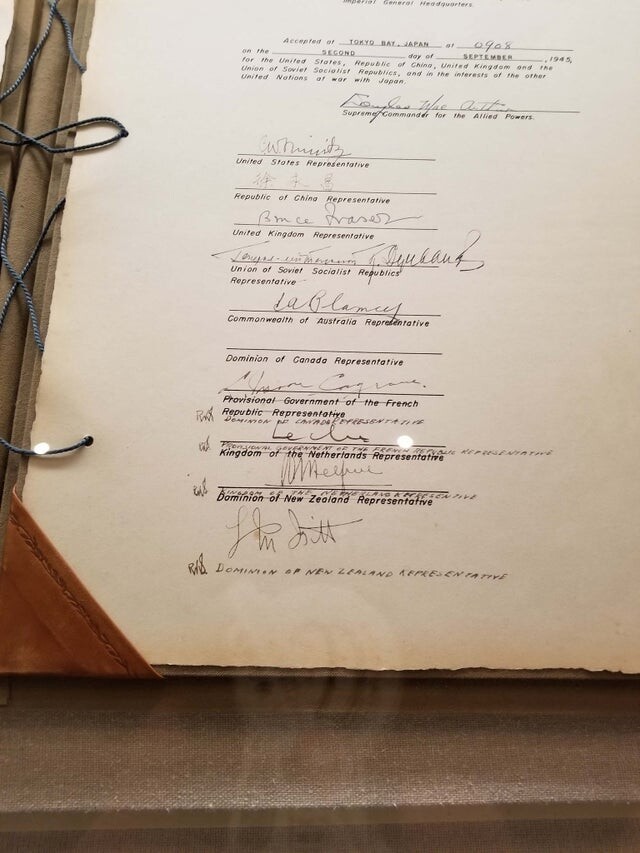 Imperial General Headquarters.
Accepted at TOKYO BAY, JAPAN at 0908
on the SECOND day of SEPTEMBER, 1945,
for the United States, Republic of China, United Kingdom and the
Union of Soviet Socialist Republics, and in the interests of the other
United Nations at war with Japan.
Douglas MacArthur
Supreme Commander for the Allied Powers.
CW Nimitz
United States Representative
徐永昌
Republic of China Representative
Bruce Fraser
United Kingdom Representative
Union of Soviet Socialist Republics
Representative
Commonwealth of Australia Representative
Dominion of Canada Representative
Provisional Government of the French
Republic Representative
DOMINION OF CANADA REPRESENTATIVE
PROVISIONAL GOVERNMENT OF THE FRENCH REPUBLIC REPRESENTATIVE
Kingdom of the Netherlands Representative
KINGDOM OF THE NETHERLAND REPRESENTATIVE
Dominion of New Zealand Representative
DOMINION OF NEW ZEALAND REPRESENTATIVE